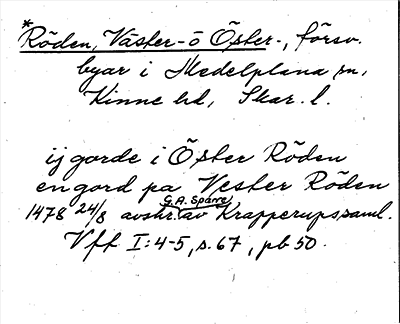 *Röden, Väster- o Öster-, försv.
byar i Medelplana sn,
Kinne hd, Skar. l.
ij gorde i Öster Röden
en gord pa Vester Röden
1478 24/8 avskr. G.A. Sparre av Krapperupssaml.
Vff I:4-5, s. 67, pb 50.